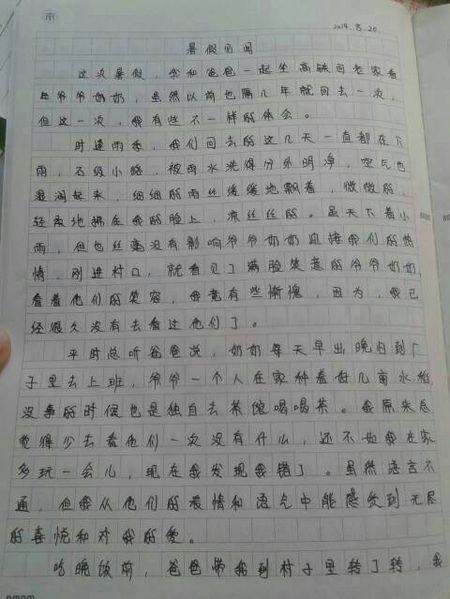 雨
2014.8.20.
暑假见闻
这次暑假,我和爸爸一起坐高铁回老家看
望爷爷奶奶,虽然以前也隔几年就回去一次,
但这一次,我有些不一样的体会。
时逢雨季,我们回去的这几天一直都在下
雨,石级小路,被雨水洗得分外明净,空气也
湿润起来,细细的雨丝缓缓地飘着,微微的、
轻柔地拂在我的脸上,凉丝丝的。虽天下着小
雨,但也丝毫没有影响爷爷奶奶迎接我们的热
情,刚进村口,就看见了满脸笑意的爷爷奶奶,
看着他们的笑容,我竟有些惭愧,因为,我已
经很久没有去看过他们了。
平时总听爸爸说,奶奶每天早出晚归到厂
子里去上班,爷爷一个人在家种着好几亩水稻
没事的时候也是独自去茶馆喝喝茶。我原来总
觉得少去看他们一次没有什么,还不如我在家
多玩一会儿,现在我发现我错了。虽然语言不
通,但我从他们的表情和语气中能感受到无尽
的喜悦和对我的爱。
吃晚饭前,爸爸带我到村子里转了转,我